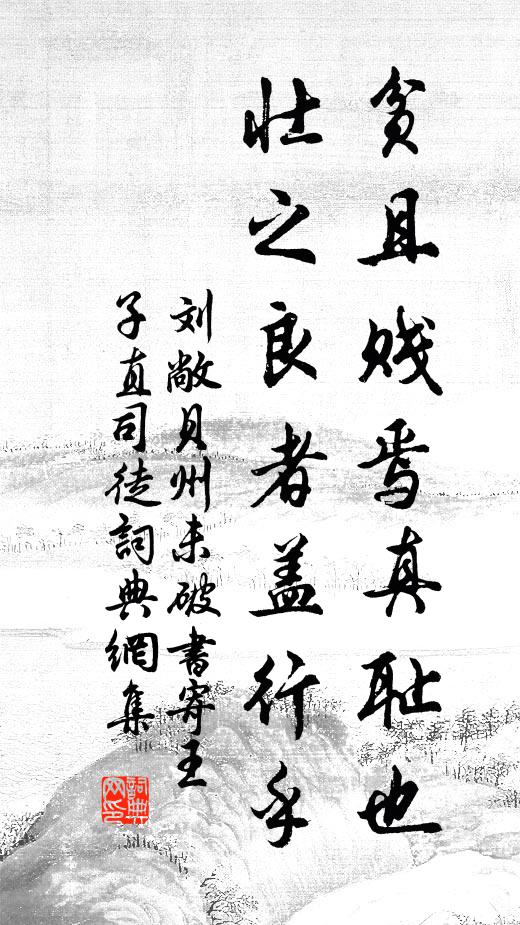 贫且贱焉真耻也
壮之良者盖行乎
刘敞贝州未破书寄王
子直司徒詞典網集
詞典
网印